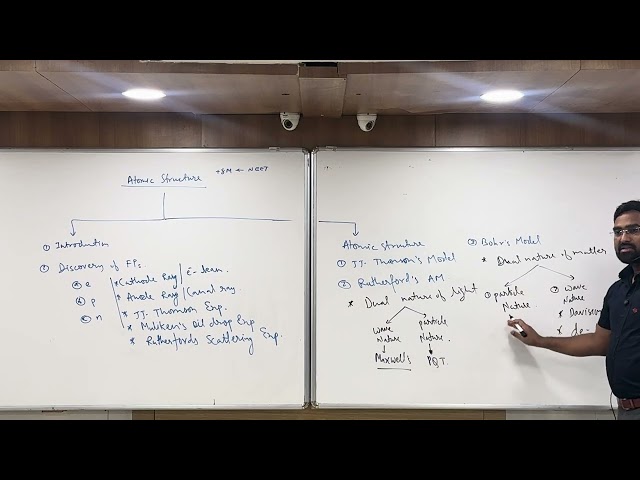 Atomic Structure +8M ← NEET
① Introduction
② Discovery of FPs.
ⓐ e
ⓑ p
ⓒ n
* Cathode Ray / E- bean.
* Anode Ray / Canal ray.
* JJ. Thomson Exp.
* Muliken's Oil drop Exp
* Rutherfords Scattering Exp.
Atomic Structure
① JJ. Thomson's Model
② Rutherford's AM
* Dual nature of light
wave Nature
particle Nature.
Maxwell's
PQT.
③ Bohr's Model
* Dual nature of matter
① particle Nature.
② wave Nature
* Davisson
* de-